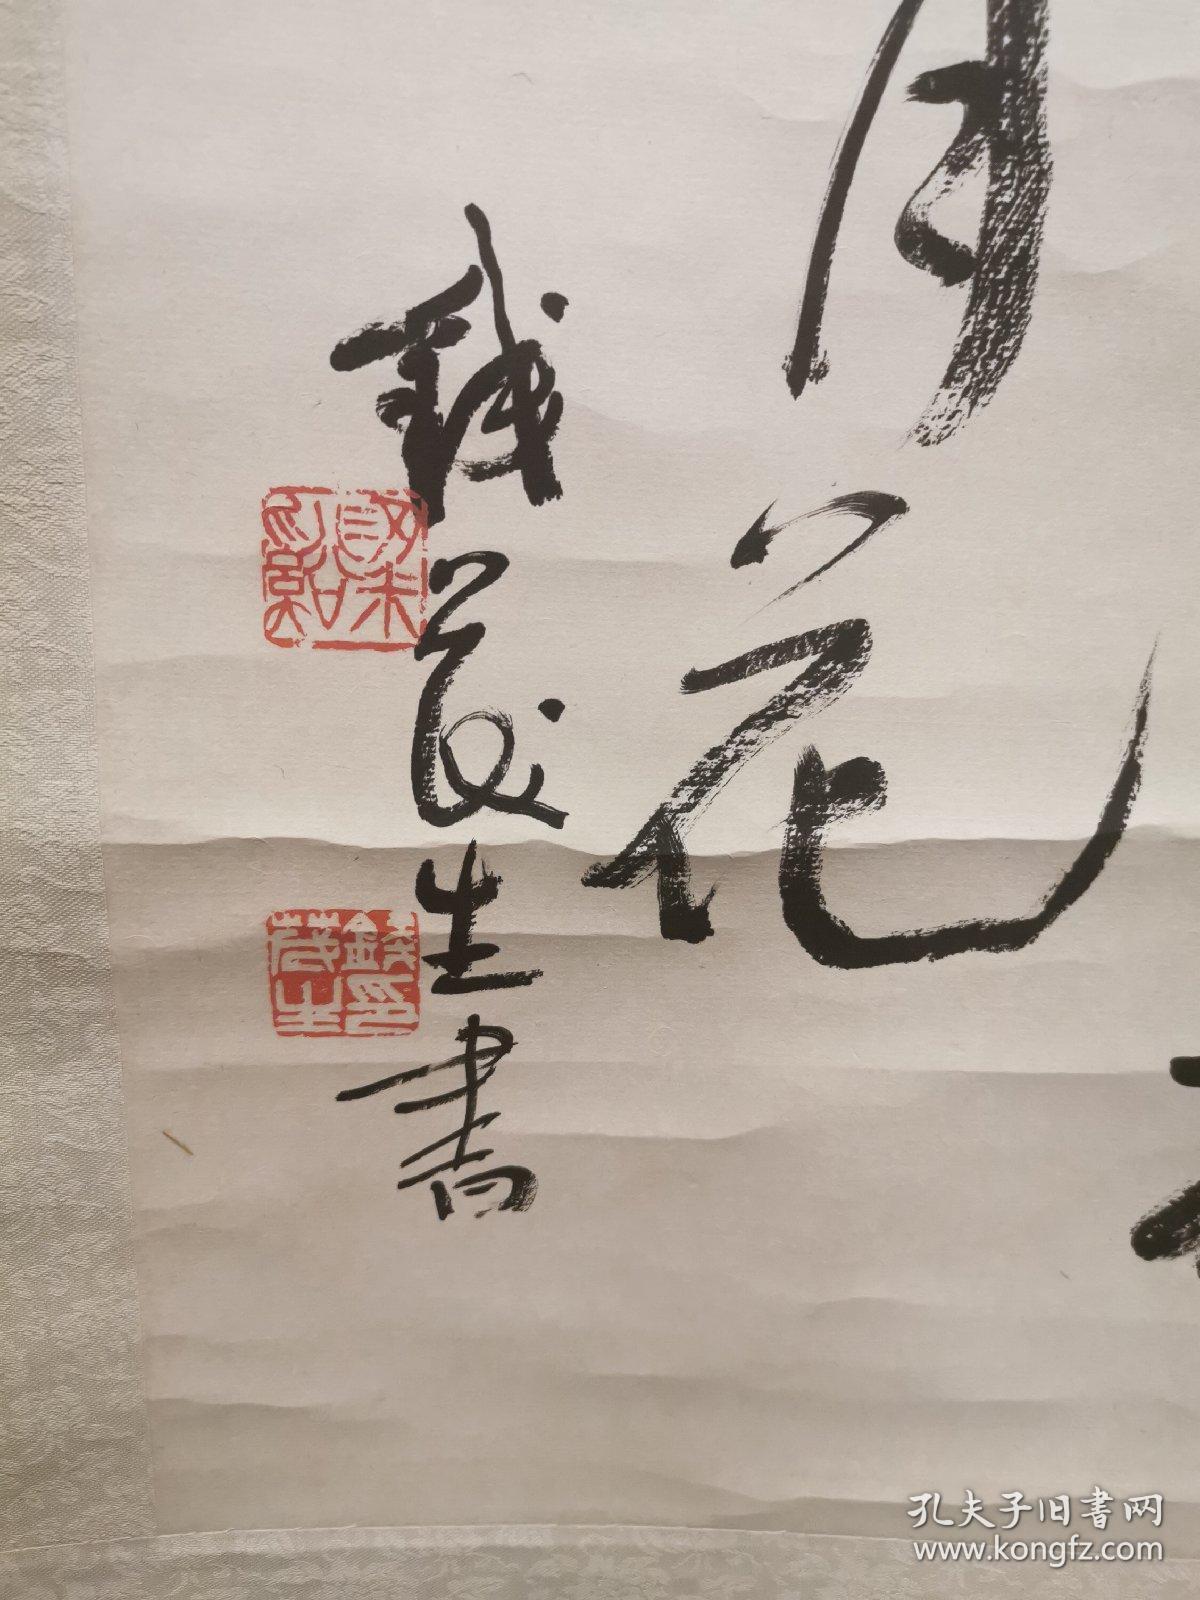 月花
錢茂生書
錢茂生印
孔夫子旧書网
www.kongfz.com